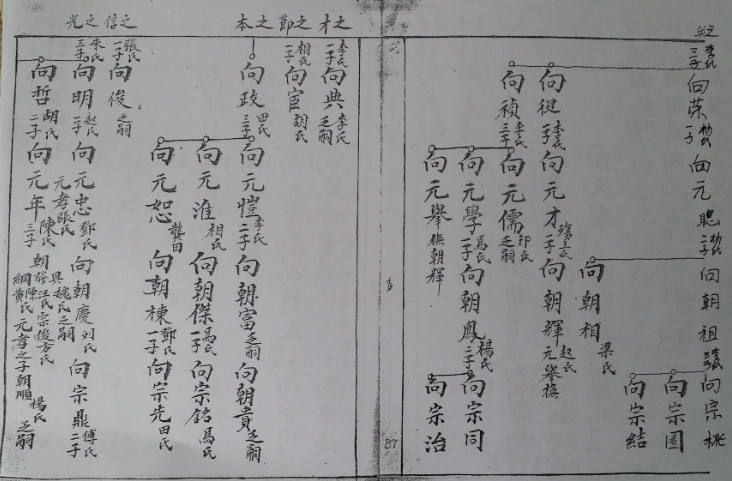 之
李氏
三子
向荣
一子
向元聰
二子
向朝祖
向宗桃
向宗園
向宗結
向朝相
梁氏
向徤
李氏
一子
向元才
二子
向朝輝
趙氏
元舉撫
向禎
李氏
三子
向元儒
邱氏
乏嗣
向元學
馬氏
一子
向朝鳳
楊氏
二子
向宗同
向宗治
向元舉
撫朝輝
87
才之節之本之
光之信之
李氏
一子
向典
李氏
乏嗣
相氏
一子
向宦
胡氏
向政
田氏
三子
向元愷
李氏
二子
向朝富
乏嗣
向朝貴
乏嗣
向元淮
相氏
向朝傑
馬氏
一子
向宗銘
馬氏
向元恕
龔氏
向朝棟
鄧氏
一子
向宗先
田氏
張氏
一子
向俊
乏嗣
朱氏
三子
向明
趙氏
一子
向元忠
鄧氏
向朝慶
刘氏
向宗鼎
傅氏
二子
元孝張氏
魏氏乏嗣
向哲
胡氏
二子
向元年
陳氏
三子
朝
汪氏
宗俊方氏
綱黄氏
元孝之子朝順
楊氏
乏嗣